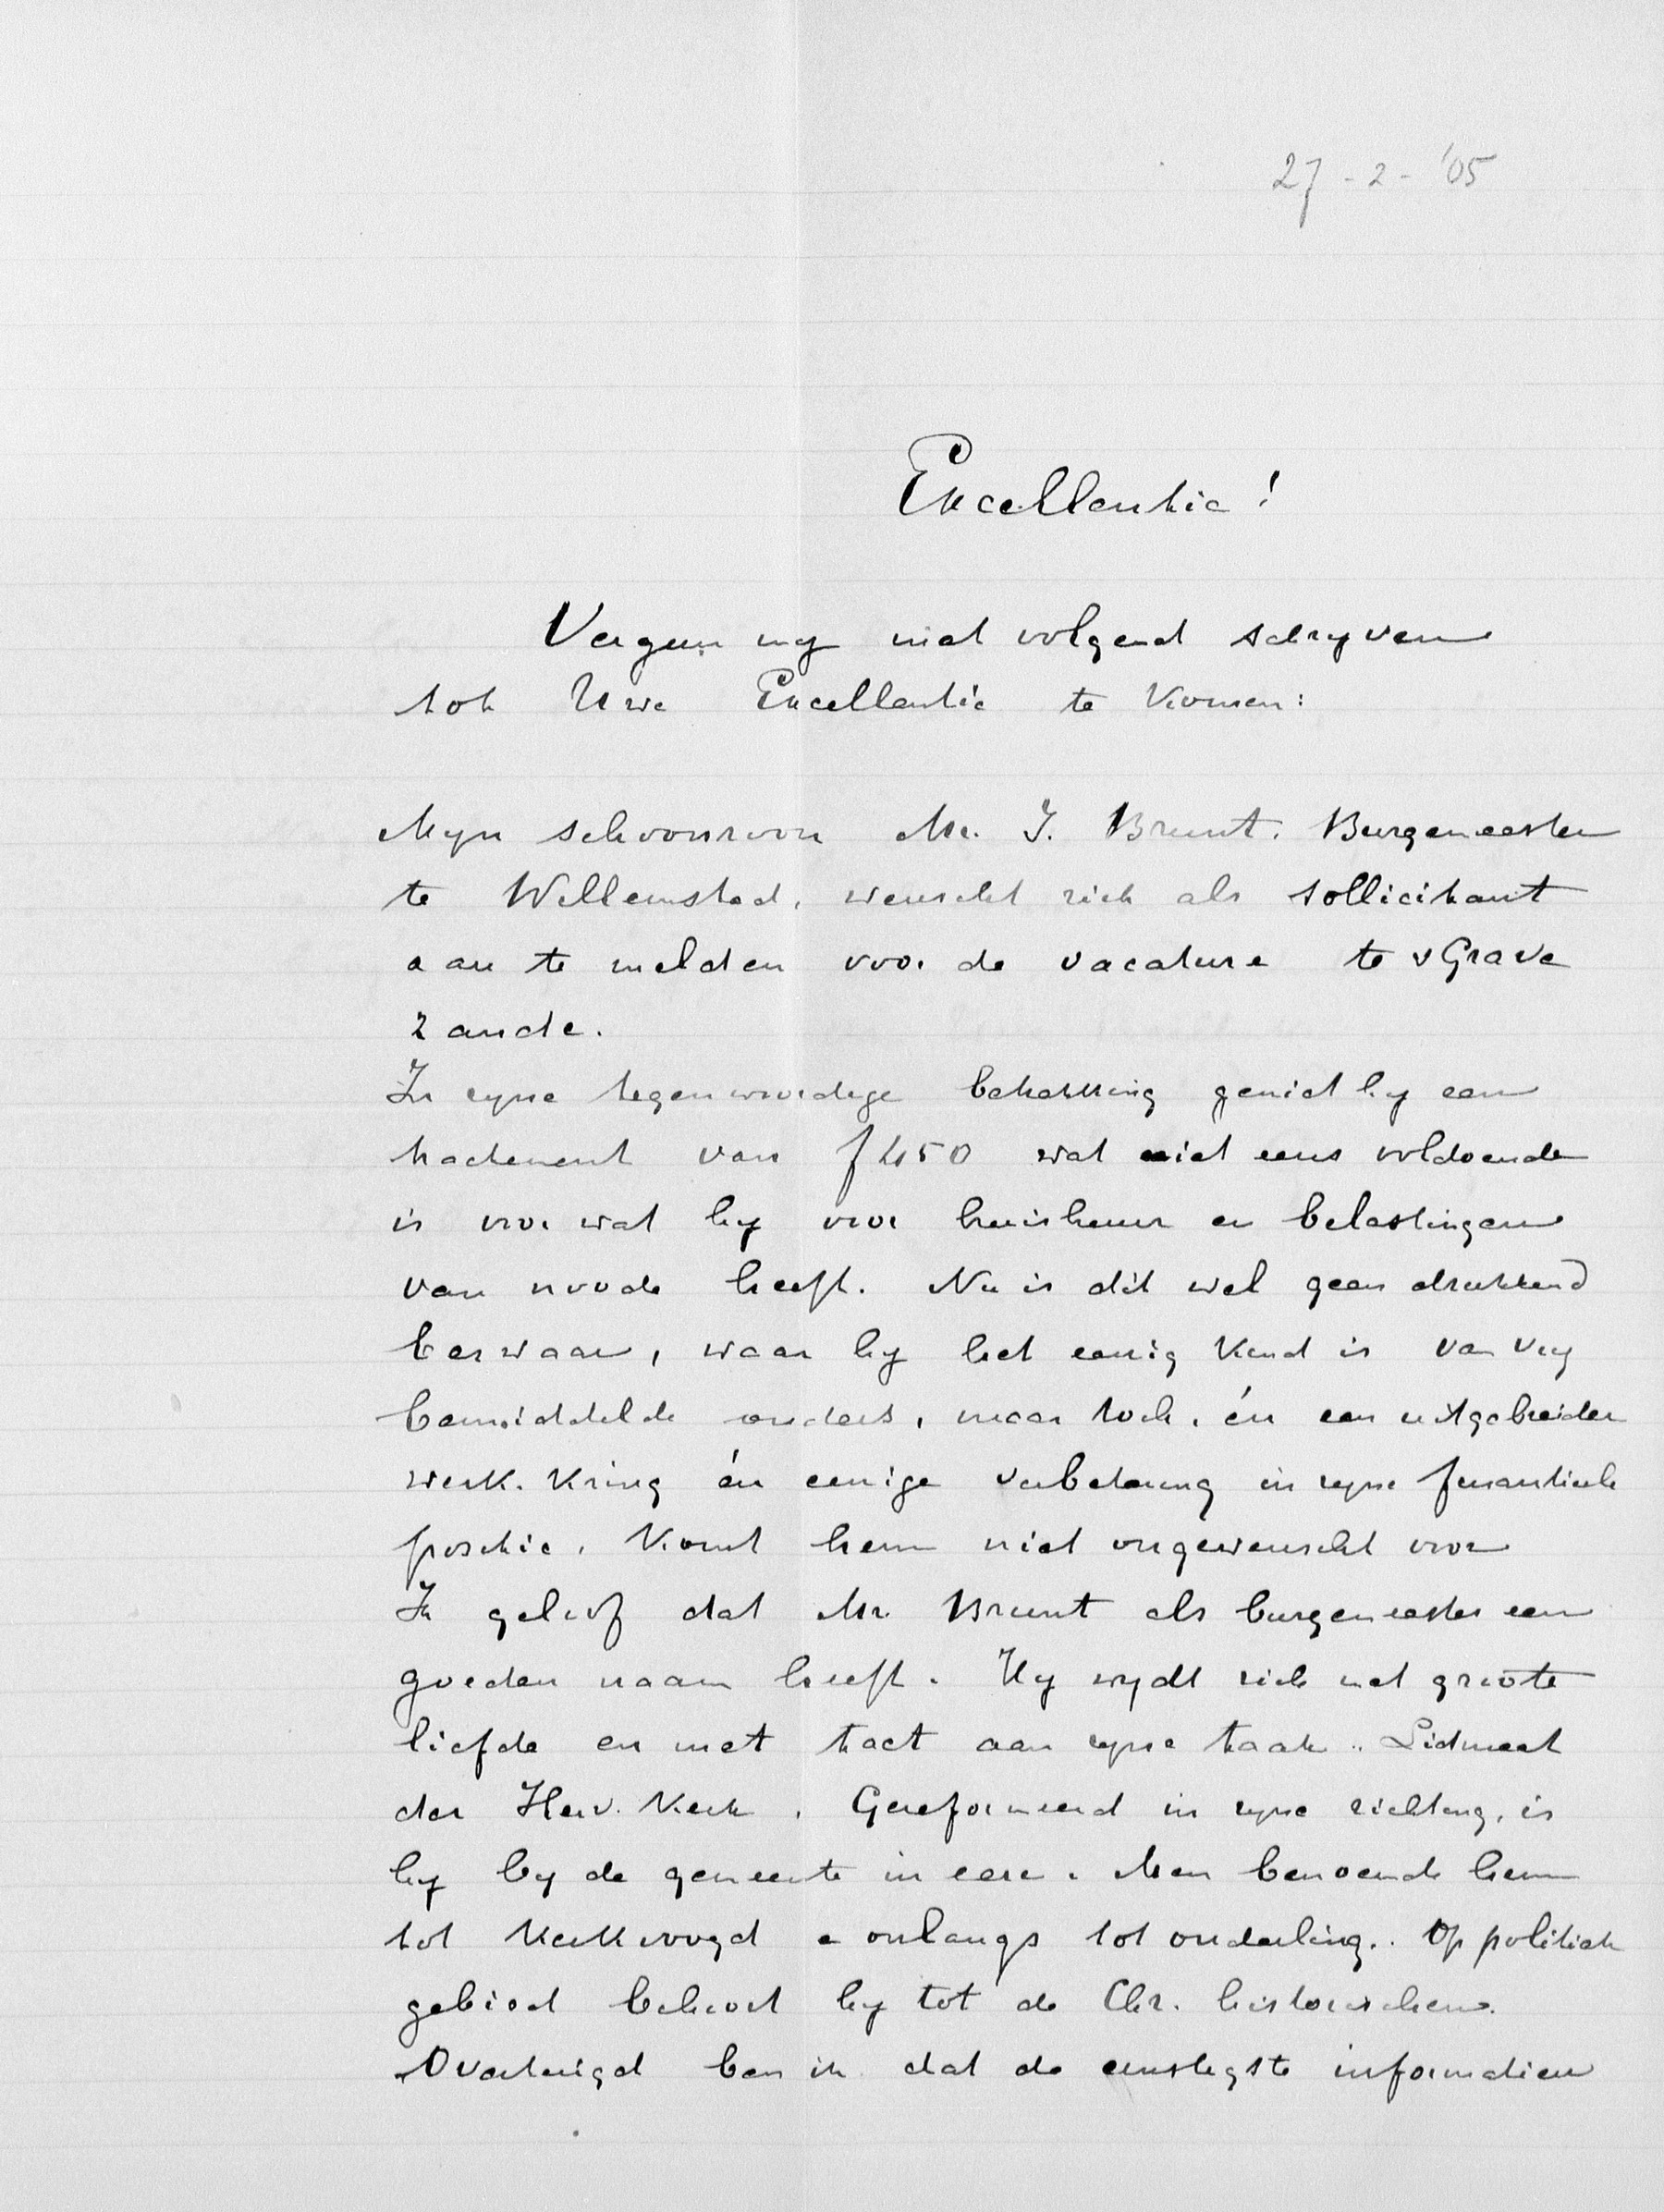 27-2-'05
Excellentie!
Vergun my met volgend schryven
tot Uwe Excellentie te komen:
Myn schoonzoon Mr. J. Brunt. Burgemeester
te Willemstad, wenscht zich als sollicitant
aan te melden voor de vacature te 'sGrave
zande.
In zyne tegenwoordige betrekking geniet hy een
tractement van f 450 wat niet eens voldoende
is voor wat hy voor huishuur en belastingen
van noode heeft. Nu is dit wel geen drukkend
bezwaar, waar hy het eenig kind is van vry
bemiddelde ouders, maar toch, én een uitgebreider
werk-kring én eenige verbetering in zyne finantieele
positie, komt hem niet ongewenscht voor
Ik geloof dat Mr. Brunt als burgemeester een
goeden naam heeft. Hy wydt zich met groote
liefde en met tact aan zyne taak. Lidmaat
der Herv. Kerk, Gereformeerd in zyne richting, is
hy by de gemeente in eere. Men benoemde hem
tot kerkvoogd en onlangs tot ouderling. Op politiek
gebied behoort hy tot de Chr. historischen.
Overtuigd ben ik dat de ernstigste informatien